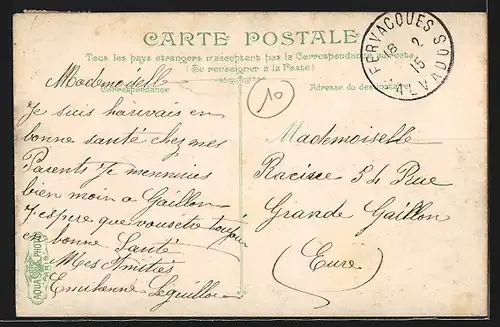 CARTE POSTALE
Tous les pays étrangers n'acceptent pas la Correspondance au recto
(Se renseigner à la Poste)
Correspondance
Adresse du destinataire
FERVACQUES
CALVADOS
18 2
15
10
Mademoiselle
Je suis
bonne santé chez mes
Parents Je mennuies
bien moin a Gaillon
J'espere que vous ete toujour
en bonne Santé
Mes Amitiés
Leguillon
Mademoiselle
Racine 54 Rue
Grande Gaillon
(Eure)
AQUA PHOTO
PARIS